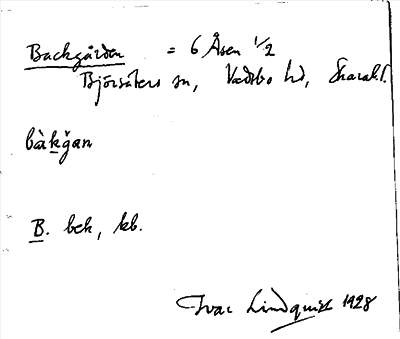 Backgården = 6 Åsen 1/2
Björsäters sn, Vadsbo hd, Skarabl.
bàkgan
B. bek, kb.
Ivar Lindquist 1928